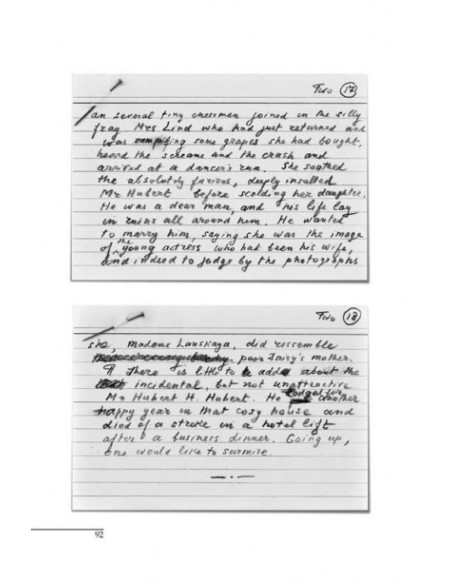 Two (17)
an several tiny chessmen joined in the silly
fray. Mrs Lind who had just returned and
was some grapes she had bought,
heard the screams and the crash and
arrived at a dancer's run. She soothed
the absolutely furious, deeply insulted
Mr Hubert before scolding her daughter.
He was a dear man, and his life lay
in ruins all around him. He wanted
to marry him, saying she was the image
of the young actress who had been his wife,
and indeed to judge by the photographs
Two (18)
she, madame Lanskaya, did ressemble
poor Daisy's mother.
¶ There is little to add about the
incidental, but not unattractive
Mr Hubert H. Hubert. He lodged for another
happy year in that cosy house and
died of a stroke in a hotel lift
after a business dinner. Going up,
one would like to surmise.
92